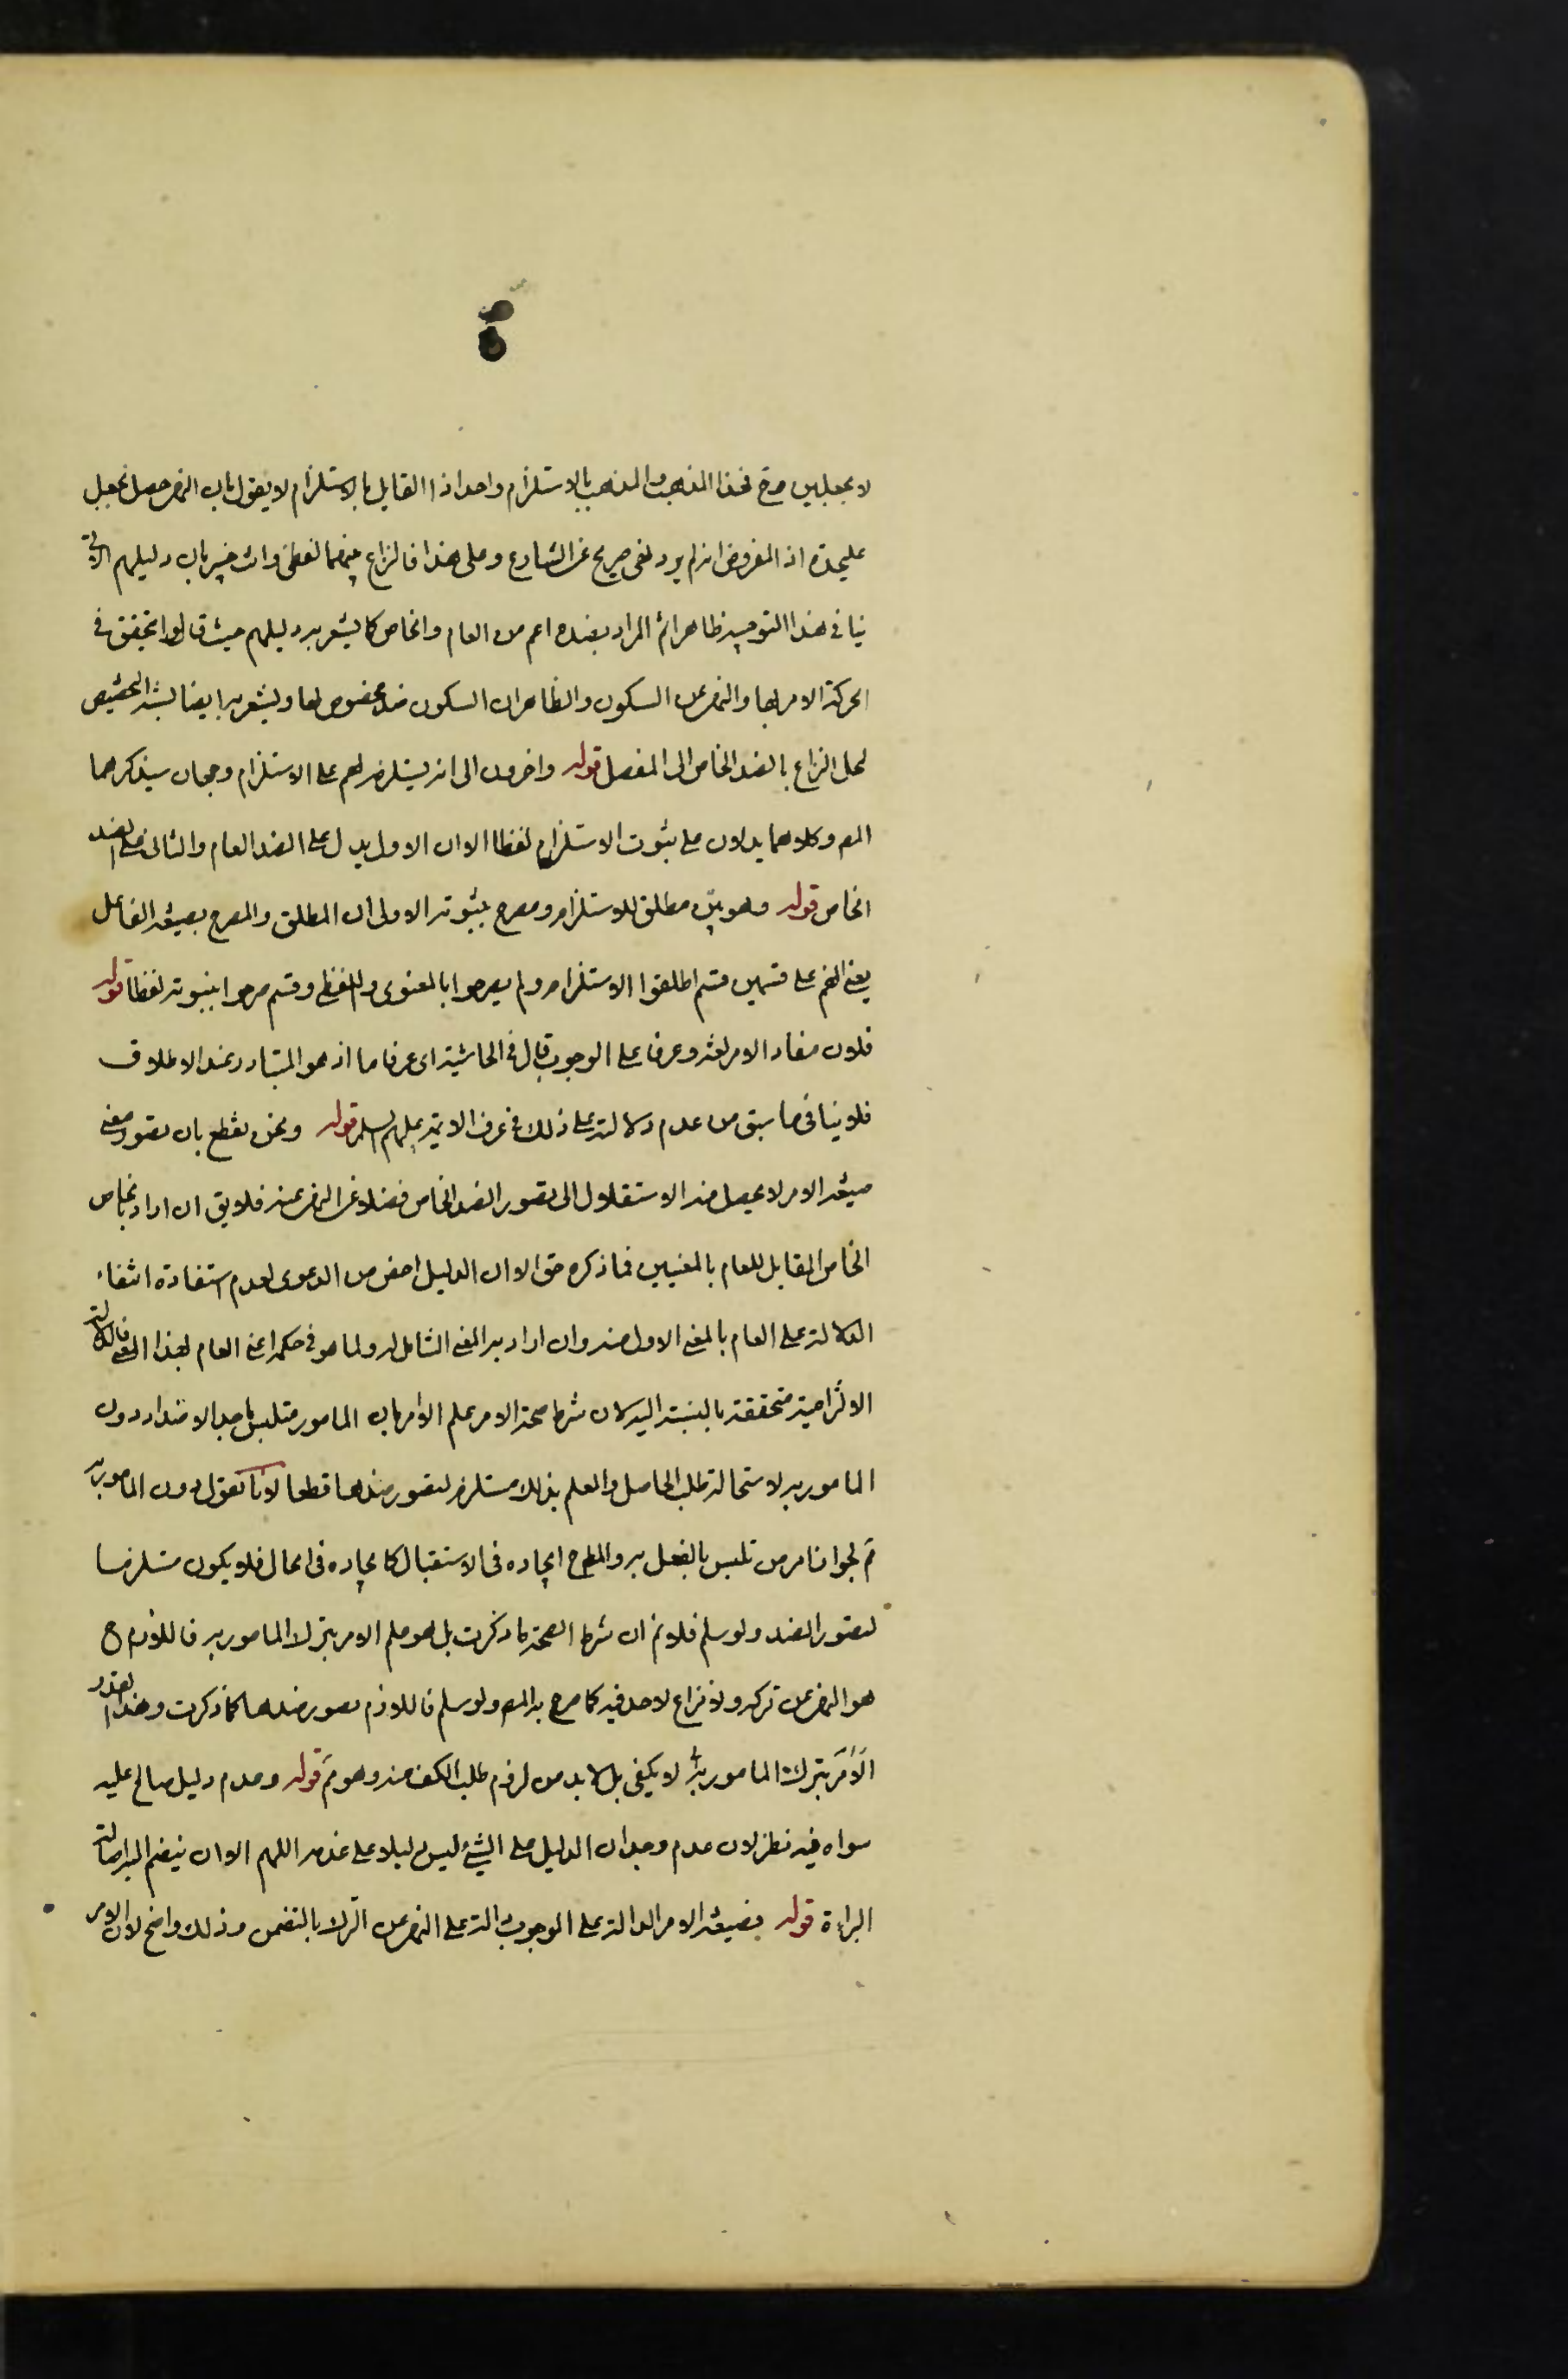 لا بجعلين وح فهذا المذهب والمذهب بالاستلزام واحد اذ القايل بالاستلزام لا يقول بان النهى حصل بجعل
عليحده اذ المفروض انه لم يرد نهى صريح عن الشارع وعلى هذا فالنزاع بينهما لفظى وانت خبير بان دليلهم الاتى
ينافى هذا التوجيه ظاهرا ثم المراد بضده اعم من العام والخاص كما يشعر به دليلهم حيث قالوا تحقق فى
الحركة الامر بها والنهى عن السكون والظاهر ان السكون ضد مخصوص لها ويشعر به ايضا نسبته التخصيص
لمحل النزاع بالضد الخاص الى المفصل قوله واخرون الى انه يستلزمه لهم على الاستلزام وجهان سيذكرهما
المص وكلاهما يدلان على ثبوت الاستلزام لفظا الا ان الاول يدل على الضد العام والثانى على الضد
الخاص قوله وهو بين مطلق للاستلزام ومصرح بثبوته الاولى ان المطلق والمصرح بصيغه الفاعل
يعنى انهم على قسمين قسم اطلقوا الاستلزام ولم يصرحوا بالمعنوى واللفظى وقسم صرحوا بثبوته لفظا قوله
فلان مفاد الامر لغة وعرفا على الوجوب قال فى الحاشية اى عرفا ما اذ هو المتبادر عند الاطلاق
فلا ينافى ما سبق من عدم دلالته على ذلك فى عرف الائمة عليهم السلم قوله ونحن نقطع بان تصور معنى
صيغه الامر لا يحصل منه الانتقال الى تصور الضد الخاص فضلا عن النهى عنه فلا يق ان اراد بالخاص
الخاص المقابل للعام بالمعنيين فما ذكره حق الا ان الدليل اخص من الدعوى لعدم استفادة انتفاء
الدلالة على العام بالمعنى الاول منه وان اراد به المعنى الشامل له ولما هو فى حكمه اعنى العام لهذا المعنى فالدلالة
الالتزامية متحققة بالنسبة اليه لان شرط صحة الامر علم الامر بان المامور متلبس باحد الاضداد دون
المامور به لاستحالة طلب الحاصل والعلم بذلك مستلزم لتصور ضدها قطعا لانا نقول دون المامور به
ثم لجواز امر من تلبس بالفعل به والمطح ايجاده فى الاستقبال كا يجاده فى الحال فلا يكون مستلزما
لتصور الضد ولو سلم فلا نم ان شرط الصحة ما ذكرت بل هو علم الامر بترك المامور به فاللازم ح
هو النهى عن تركه ولا نزاع لاحد فيه كما صرح به المص ولو سلم فاللازم تصور ضدها كما ذكرت وهذا القدر
الامر بترك المامور به لا يكفى بل لا بد من لزوم طلب الكف عنه وهو ثم قوله وعدم دليل صالح عليه
سواه فيه نظر لان عدم وجدان الدليل على الشىء ليس دليلا على عدمه اللهم الا ان ينضم اليه اصالة
البراءة قوله فصيغه الامر الدالة على الوجوب دالة على النهى عن الترك بالتضمن وذلك واضح لان الامر